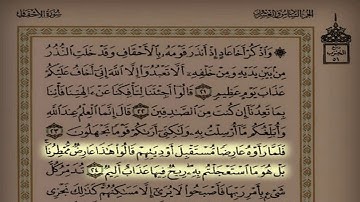 الجزء السادس والعشرون
سورة الأحقاف
الحزب
٥١
۞ وَاذْكُرْ أَخَا عَادٍ إِذْ أَنذَرَ قَوْمَهُ بِالْأَحْقَافِ وَقَدْ خَلَتِ النُّذُرُ
مِن بَيْنِ يَدَيْهِ وَمِنْ خَلْفِهِ أَلَّا تَعْبُدُوا إِلَّا اللَّهَ إِنِّي أَخَافُ عَلَيْكُمْ
عَذَابَ يَوْمٍ عَظِيمٍ ٢١ قَالُوا أَجِئْتَنَا لِتَأْفِكَنَا عَنْ آلِهَتِنَا فَأْتِنَا
بِمَا تَعِدُنَا إِن كُنتَ مِنَ الصَّادِقِينَ ٢٢ قَالَ إِنَّمَا الْعِلْمُ عِندَ اللَّهِ
وَأُبَلِّغُكُم مَّا أُرْسِلْتُ بِهِ وَلَٰكِنِّي أَرَاكُمْ قَوْمًا تَجْهَلُونَ ٢٣
فَلَمَّا رَأَوْهُ عَارِضًا مُّسْتَقْبِلَ أَوْدِيَتِهِمْ قَالُوا هَٰذَا عَارِضٌ مُّمْطِرُنَا
بَلْ هُوَ مَا اسْتَعْجَلْتُم بِهِ رِيحٌ فِيهَا عَذَابٌ أَلِيمٌ ٢٤ تُدَمِّرُ كُلَّ
شَيْءٍ بِأَمْرِ رَبِّهَا فَأَصْبَحُوا لَا يُرَىٰ إِلَّا مَسَاكِنُهُمْ كَذَٰلِكَ نَجْزِي